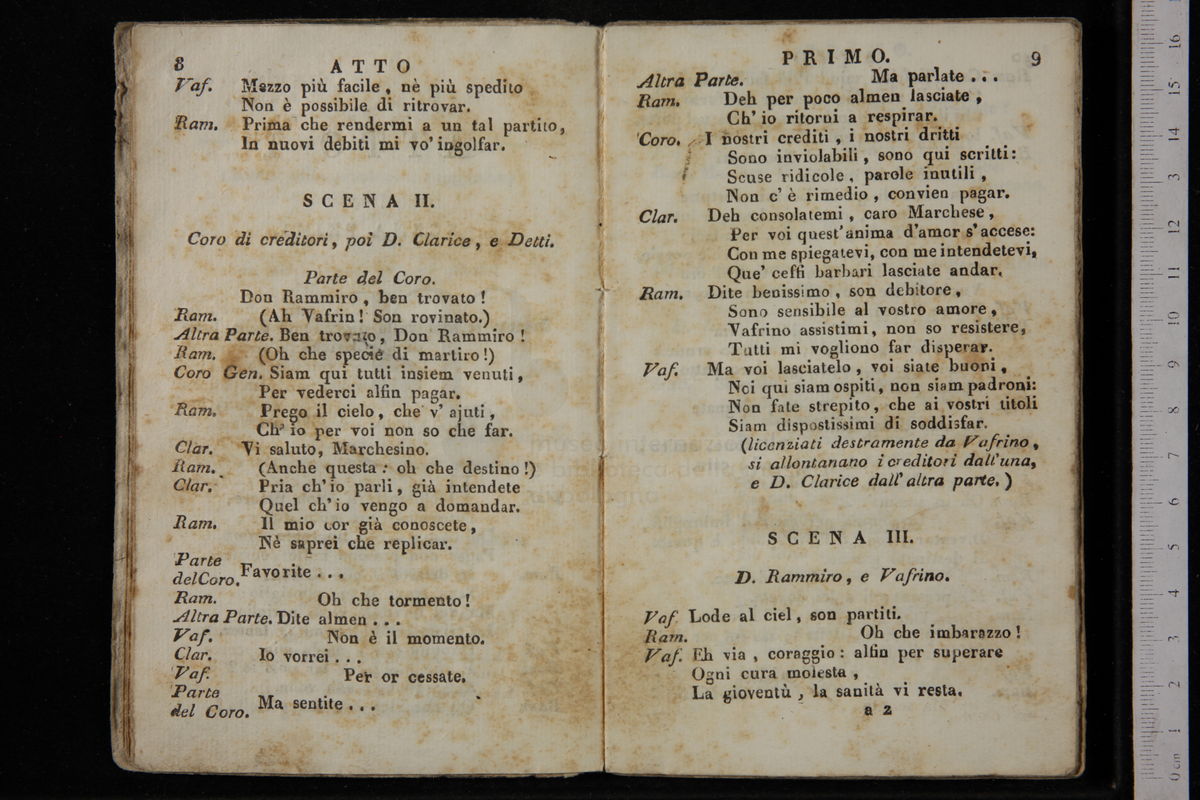 8 ATTO
Vaf. Mezzo più facile, nè più spedito
Non è possibile di ritrovar.
Ram. Prima che rendermi a un tal partito,
In nuovi debiti mi vo' ingolfar.
SCENA II.
Coro di creditori, poi D. Clarice, e Detti.
Parte del Coro.
Don Rammiro, ben trovato!
Ram. (Ah Vafrin! Son rovinato.)
Altra Parte. Ben trovato, Don Rammiro!
Ram. (Oh che specie di martiro!)
Coro Gen. Siam qui tutti insiem venuti,
Per vederci alfin pagar.
Ram. Prego il cielo, che v' ajuti,
Ch' io per voi non so che far.
Clar. Vi saluto, Marchesino.
Ram. (Anche questa: oh che destino!)
Clar. Pria ch' io parli, già intendete
Quel ch' io vengo a domandar.
Ram. Il mio cor già conoscete,
Nè saprei che replicar.
Parte
del Coro. Favorite...
Ram. Oh che tormento!
Altra Parte. Dite almen...
Vaf. Non è il momento.
Clar. Io vorrei...
Vaf. Per or cessate.
Parte
del Coro. Ma sentite...
PRIMO. 9
Altra Parte. Ma parlate...
Ram. Deh per poco almen lasciate,
Ch' io ritorni a respirar.
Coro. I nostri crediti, i nostri dritti
Sono inviolabili, sono qui scritti:
Scuse ridicole, parole inutili,
Non c' è rimedio, convien pagar.
Clar. Deh consolatemi, caro Marchese,
Per voi quest' anima d'amor s' accese:
Con me spiegatevi, con me intendetevi,
Que' ceffi barbari lasciate andar.
Ram. Dite benissimo, son debitore,
Sono sensibile al vostro amore,
Vafrino assistimi, non so resistere,
Tutti mi vogliono far disperar.
Vaf. Ma voi lasciatelo, voi siate buoni,
Noi qui siam ospiti, non siam padroni:
Non fate strepito, che ai vostri titoli
Siam dispostissimi di soddisfar.
(licenziati destramente da Vafrino,
si allontanano i creditori dall' una,
e D. Clarice dall' altra parte.)
SCENA III.
D. Rammiro, e Vafrino.
Vaf. Lode al ciel, son partiti.
Ram. Oh che imbarazzo!
Vaf. Eh via, coraggio: alfin per superare
Ogni cura molesta,
La gioventù, la sanità vi resta.
a 2